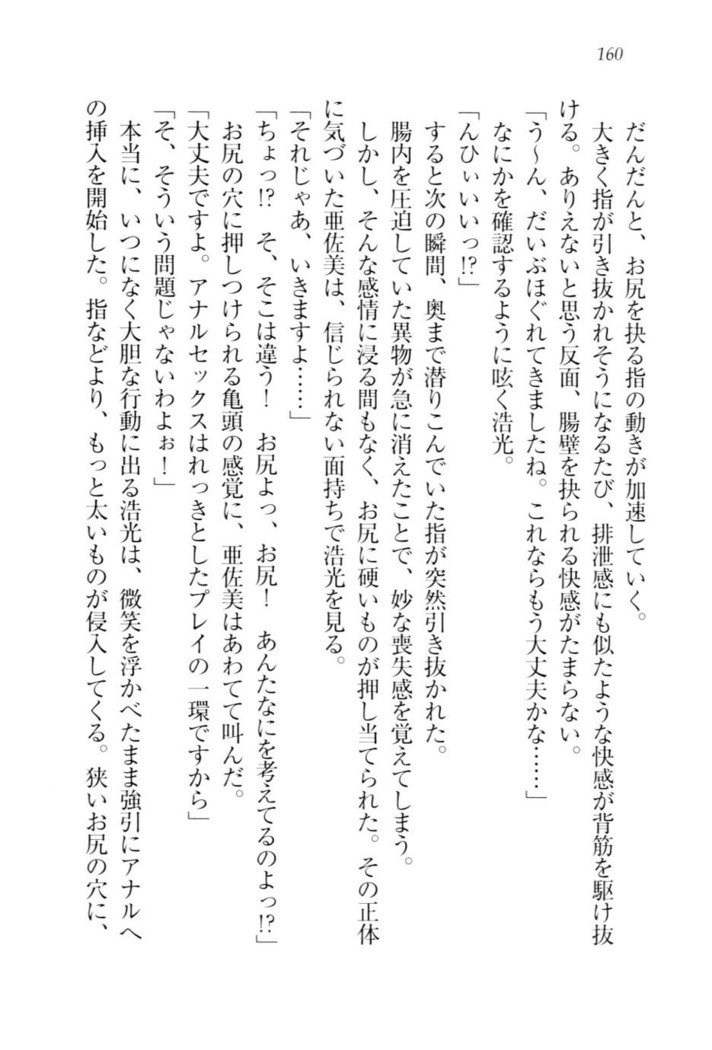 160
だんだんと、お尻を抉る指の動きが加速していく。
大きく指が引き抜かれそうになるたび、排泄感にも似たような快感が背筋を駆け抜
ける。ありえないと思う反面、腸壁を抉られる快感がたまらない。
「う～ん、だいぶほぐれてきましたね。これならもう大丈夫かな……」
なにかを確認するように呟く浩光。
「んひぃいいっ!?」
すると次の瞬間、奥まで潜りこんでいた指が突然引き抜かれた。
腸内を圧迫していた異物が急に消えたことで、妙な喪失感を覚えてしまう。
しかし、そんな感情に浸る間もなく、お尻に硬いものが押し当てられた。その正体
に気づいた亜佐美は、信じられない面持ちで浩光を見る。
「それじゃあ、いきますよ……」
「ちょっ!?　そ、そこは違う！　お尻よっ、お尻！　あんたなにを考えてるのよっ!?」
お尻の穴に押しつけられる亀頭の感覚に、亜佐美はあわてて叫んだ。
「大丈夫ですよ。アナルセックスはれっきとしたプレイの一環ですから」
「そ、そういう問題じゃないわよぉ！」
本当に、いつになく大胆な行動に出る浩光は、微笑を浮かべたまま強引にアナルへ
の挿入を開始した。指などより、もっと太いものが侵入してくる。狭いお尻の穴に、